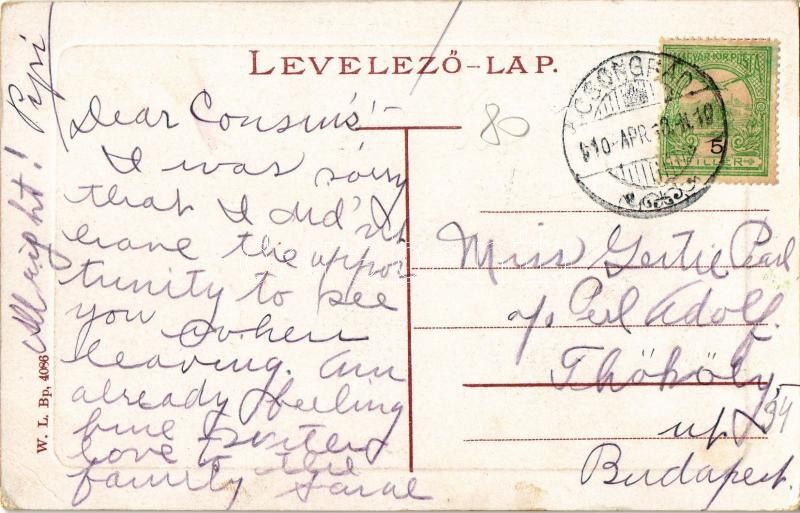 LEVELEZŐ-LAP.
CSONGRÁD
910 APR
MAGYAR KIR. POSTA
5
FILLÉR
80
Dear Cousins'-
I was sorry
that I did'nt
have the oppor
tunity to see
you when
leaving. am
already feeling
fine
love to the
family
Allright! Pipi
W. L. Bp, 4086
Miss Gertie Pearl
c/o Perl Adolf.
Thököly
up. 34
Budapest.